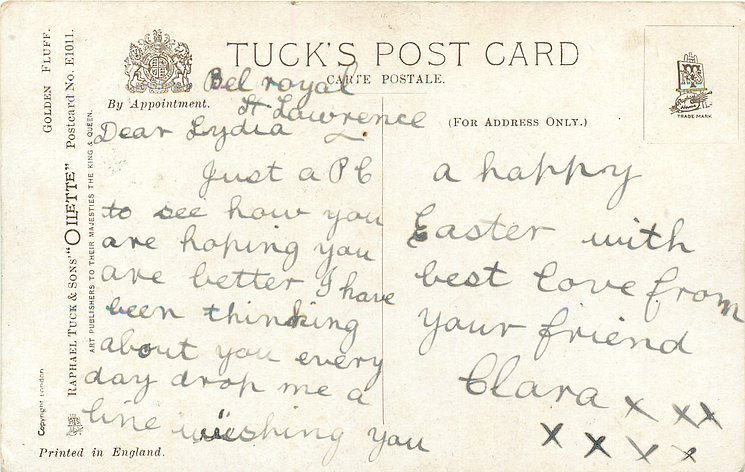 TUCK'S POST CARD
CARTE POSTALE.
By Appointment.
(FOR ADDRESS ONLY.)
TRADE MARK.
GOLDEN FLUFF.
Postcard No. E1011.
RAPHAEL TUCK & SONS' "OILETTE"
ART PUBLISHERS TO THEIR MAJESTIES THE KING & QUEEN.
Copyright London
Printed in England.
Bel royal
St Lawrence
Dear Lydia
Just a PC
to see how you
are hoping you
are better I have
been thinking
about you every
day drop me a
line wishing you
a happy
Easter with
best love from
your friend
Clara x xx
x x x x